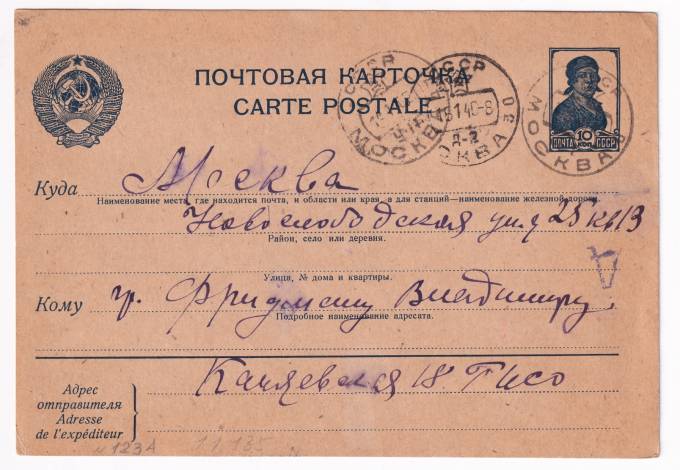 ПОЧТОВАЯ КАРТОЧКА
CARTE POSTALE
СССР
МОСКВА
СССР
15140-8
МОСКВА
10
ПОЧТА СССР
Куда Москва
Наименование места, где находится почта, и области или края, а для станций—наименование железной дороги.
Новослободская ул
Район, село или деревня.
Улица, № дома и квартиры.
Кому гр. Фридману Владимиру
Подробное наименование адресата.
18
Адрес
отправителя
Adresse
de l'expéditeur
123A